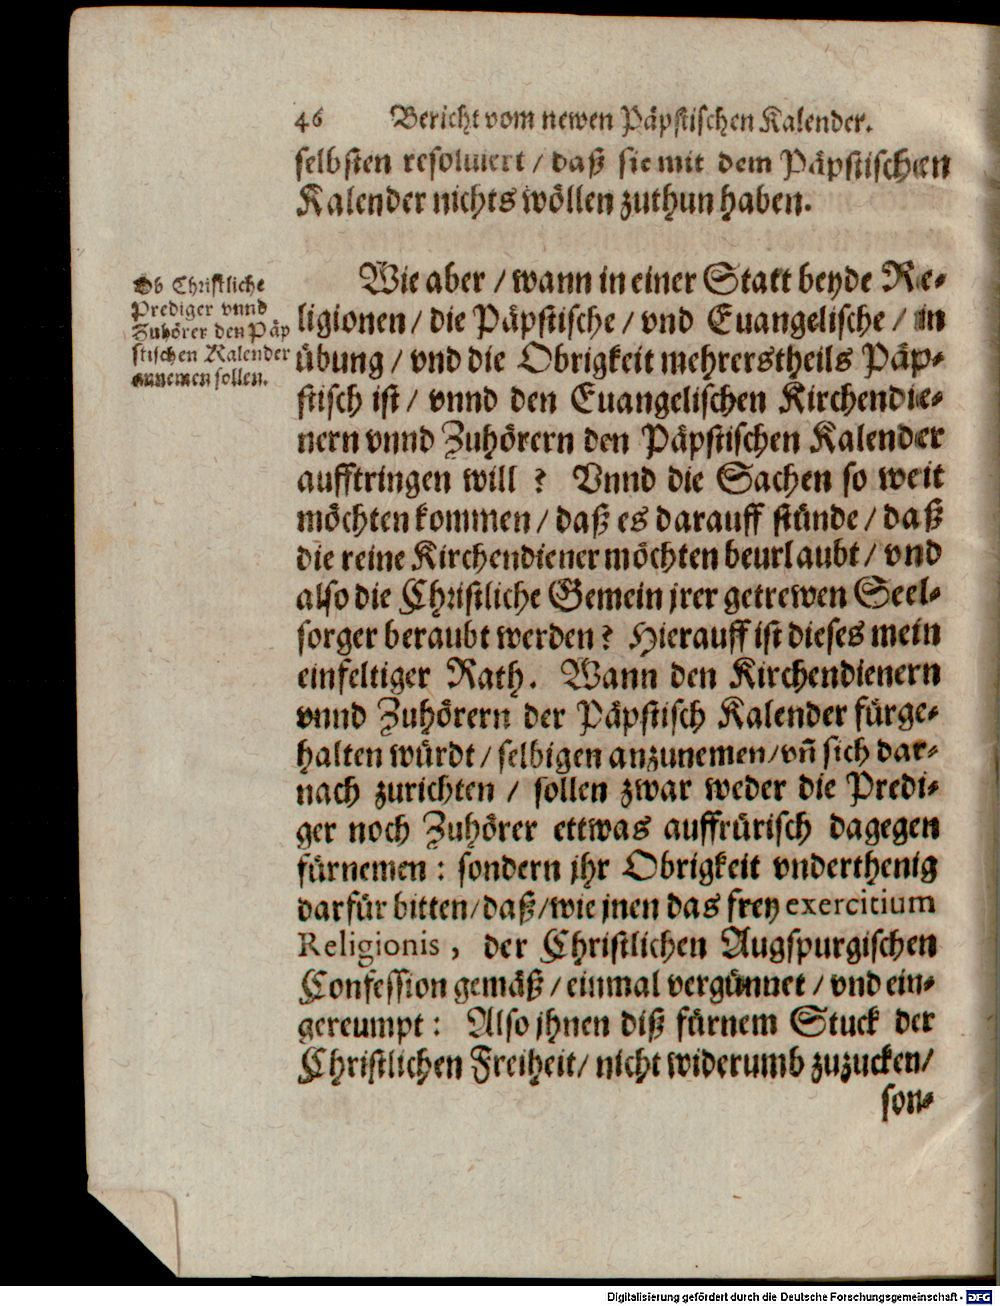 46 Bericht vom newen Päpstischen Kalender.
selbsten resoluiert / daß sie mit dem Päpstischen
Kalender nichts wöllen zuthun haben.
Ob Christliche
Prediger vnnd
Zuhörer den Päp
stischen Kalender
annemen sollen.
Wie aber / wann in einer Statt beyde Re-
ligionen / die Päpstische / vnd Euangelische / in
übung / vnd die Obrigkeit mehrerstheils Päp-
stisch ist / vnnd den Euangelischen Kirchendie-
nern vnnd Zuhörern den Päpstischen Kalender
aufftringen will ? Vnnd die Sachen so weit
möchten kommen / daß es darauff stünde / daß
die reine Kirchendiener möchten beurlaubt / vnd
also die Christliche Gemein jrer getrewen Seel-
sorger beraubt werden ? Hierauff ist dieses mein
einfeltiger Rath. Wann den Kirchendienern
vnnd Zuhörern der Päpstisch Kalender fürge-
halten würdt / selbigen anzunemen / vn̄ sich dar-
nach zurichten / sollen zwar weder die Predi-
ger noch Zuhörer ettwas auffrürisch dagegen
fürnemen : sondern jhr Obrigkeit vnderthenig
darfür bitten / daß / wie jnen das frey exercitium
Religionis, der Christlichen Augspurgischen
Confession gemäß / einmal vergünnet / vnd ein-
gereumpt : Also jhnen diß fürnem Stuck der
Christlichen Freiheit / nicht widerumb zuzucken /
son-
Digitalisierung gefördert durch die Deutsche Forschungsgemeinschaft - DFG